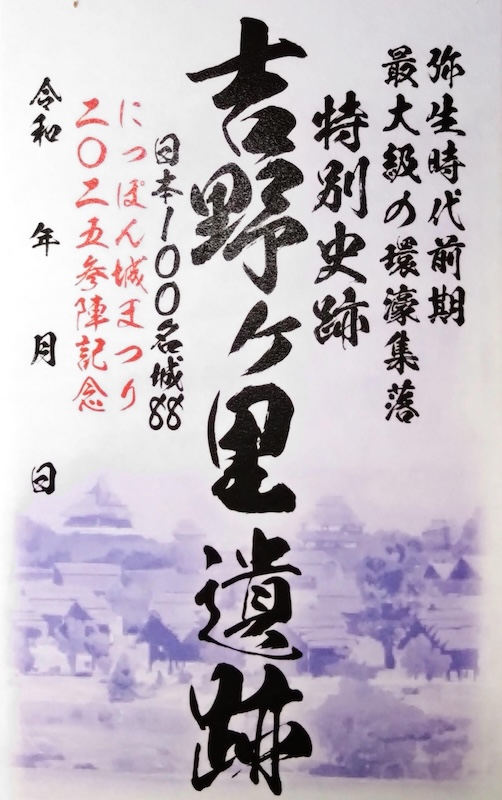 弥生時代前期
最大級の環濠集落
特別史跡
吉野ヶ里遺跡
日本100名城88
にっぽん城まつり
二〇二五参陣記念
令和 年 月 日